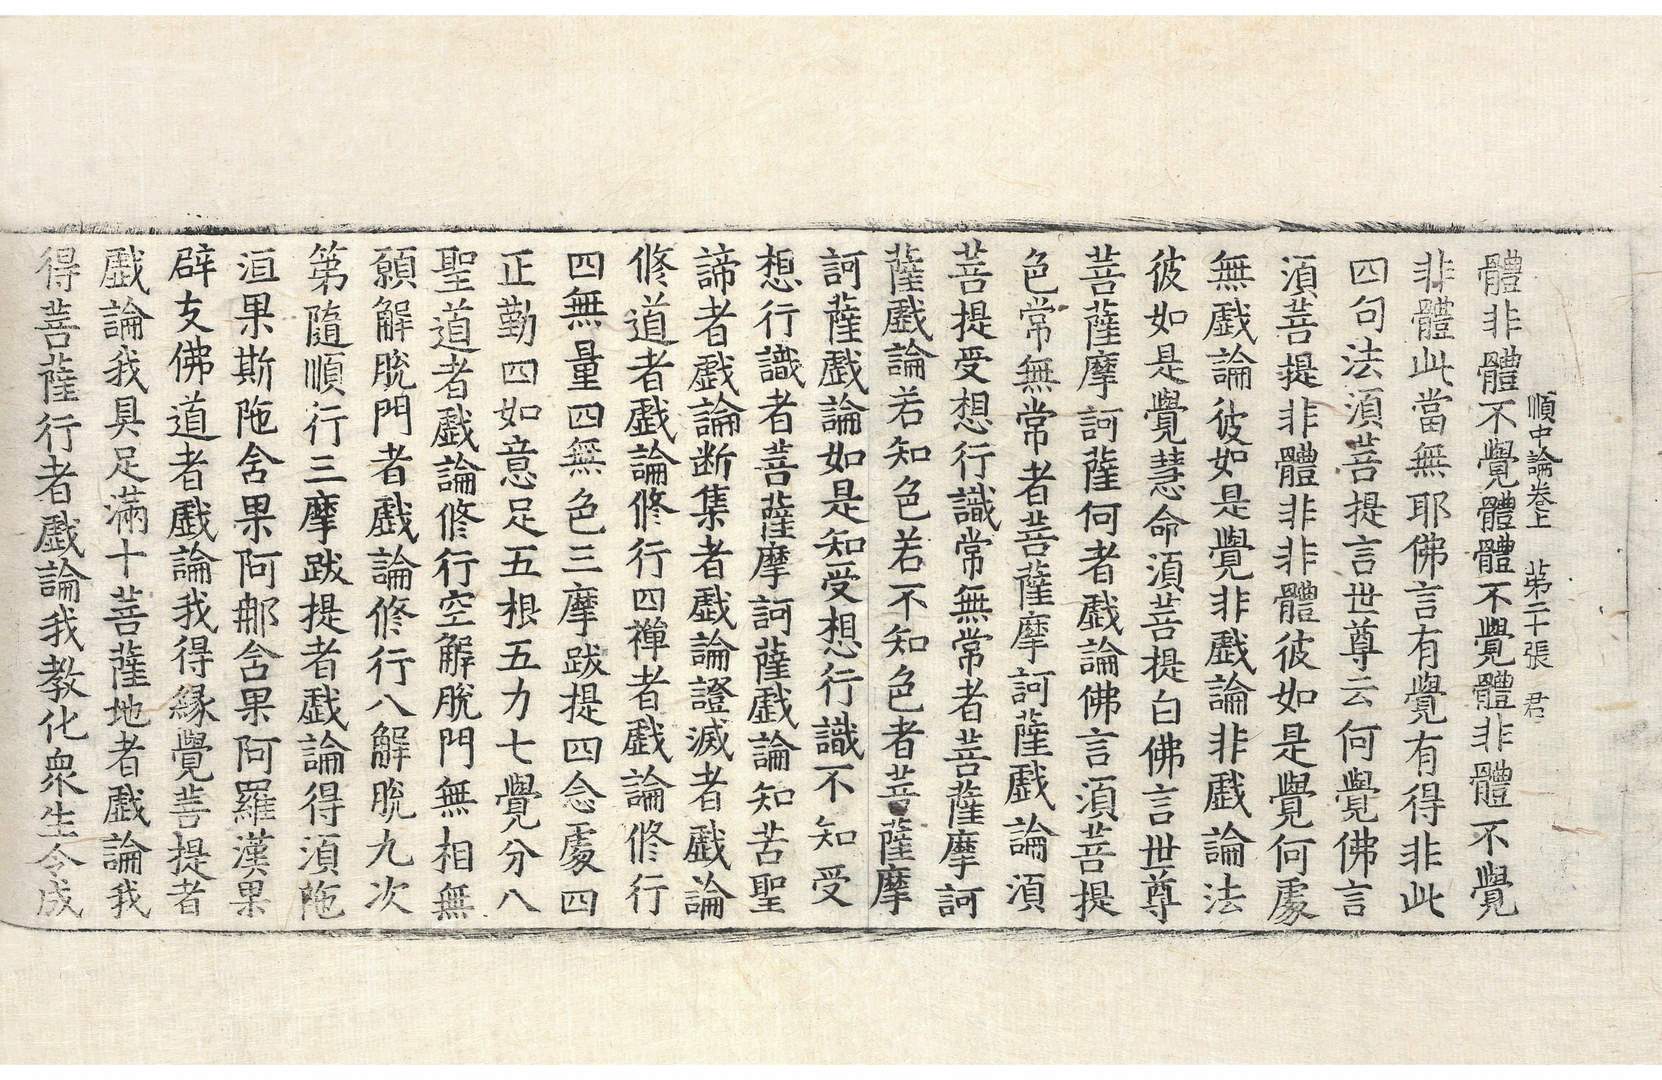 順中論卷上 第二十張 君
體非體不覺體體不覺體非體不覺
非體此當無耶佛言有覺有得非此
四句法湏菩提言世尊云何覺佛言
湏菩提非體非非體彼如是覺何處
無戲論彼如是覺非戲論非戲論法
彼如是覺慧命湏菩提白佛言世尊
菩薩摩訶薩何者戲論佛言湏菩提
色常無常者菩薩摩訶薩戲論湏
菩提受想行識常無常者菩薩摩訶
薩戲論若知色若不知色者菩薩摩
訶薩戲論如是知受想行識不知受
想行識者菩薩摩訶薩戲論知苦聖
諦者戲論断集者戲論證滅者戲論
修道者戲論修行四禪者戲論修行
四無量四無色三摩跋提四念處四
正勤四如意足五根五力七覺分八
聖道者戲論修行空解脫門無相無
願解脫門者戲論修行八解脫九次
第隨順行三摩跋提者戲論得湏陁
洹果斯陁含果阿那含果阿羅漢果
辟支佛道者戲論我得縁覺菩提者
戲論我具足滿十菩薩地者戲論我
得菩薩行者戲論我教化衆生令成